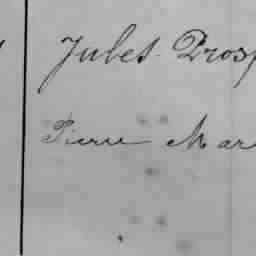 Jules Prosp
Pierre Mar